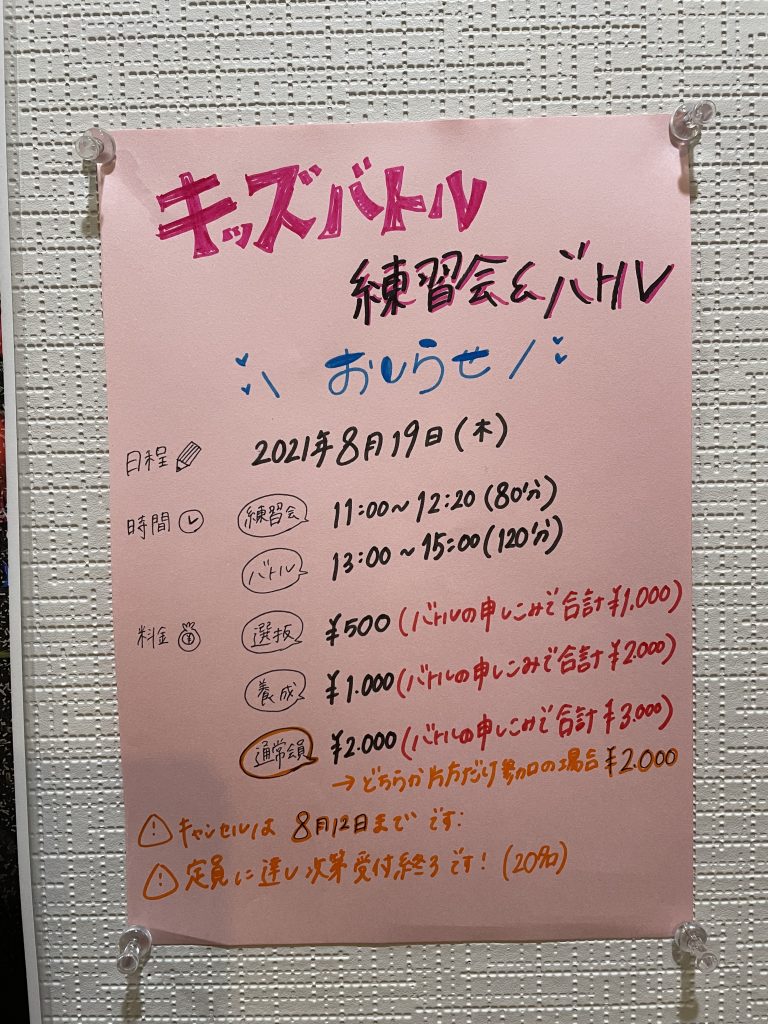 キッズバトル
練習会&バトル
おしらせ
日程 2021年8月19日(木)
時間 練習会 11:00~12:20(80分)
バトル 13:00~15:00(120分)
料金 選抜 ¥500(バトルの申しこみで合計¥1.000)
養成 ¥1.000(バトルの申しこみで合計¥2.000)
通常会員 ¥2.000(バトルの申しこみで合計¥3.000)
→どちらか片方だけ参加の場合¥2.000
キャンセルは 8月12日まで です!
定員に達し次第受付終了です!(20名)